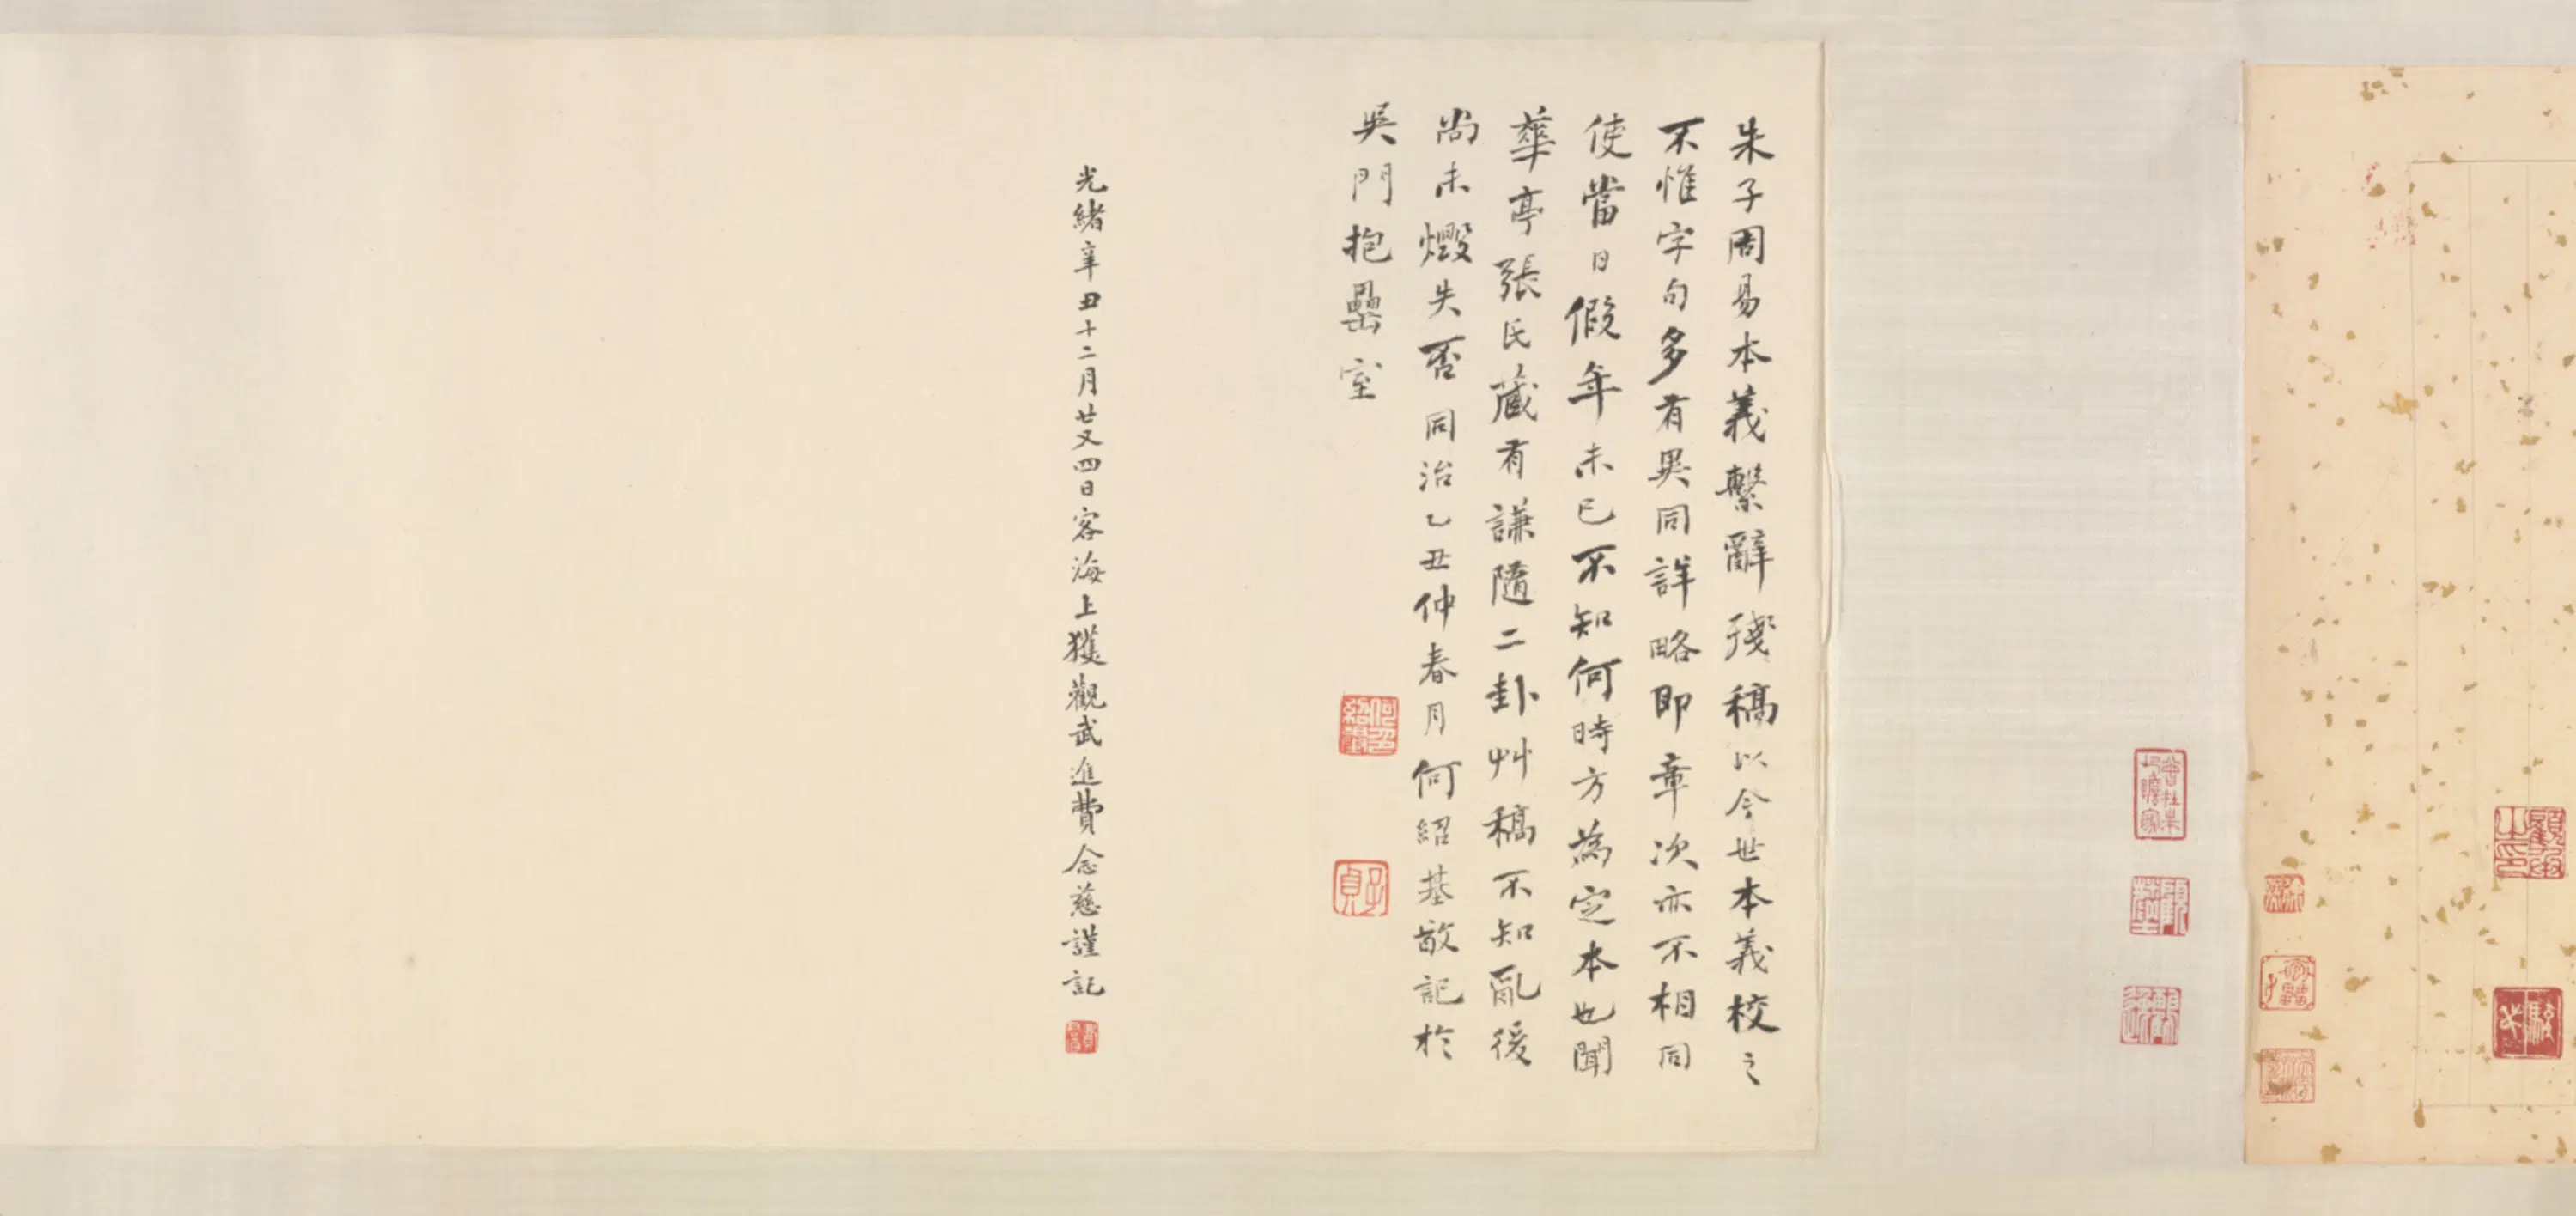 朱子周易本義繫辭殘稿以今世本義校之
不惟字句多有異同詳略即章次亦不相同
使當日假年未已不知何時方為定本也聞
華亭張氏藏有謙隨二卦艸稿不知亂後
尚未燬失否同治乙丑仲春月何紹基敬記於
吳門抱罍室
何紹基印
子貞
光緒辛丑十二月廿又四日客海上獲觀武進費念慈謹記